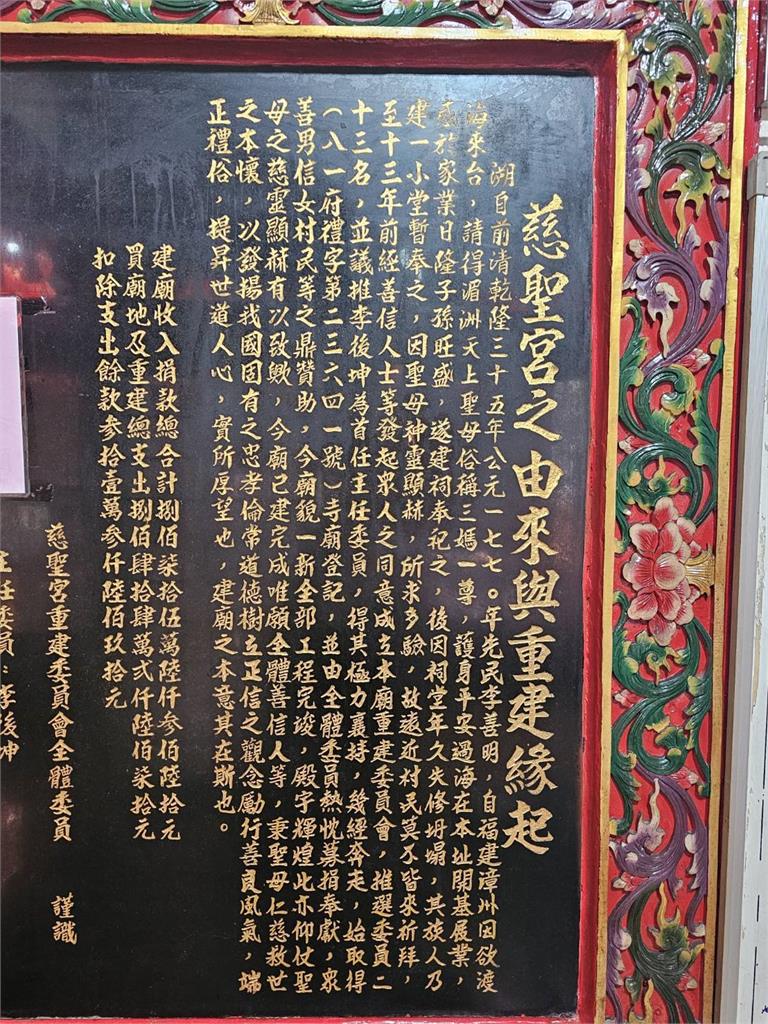 慈聖宮之由來與重建緣起
湖自前清乾隆三十五年公元一七七0年先民李善明，自福建漳州因欲渡
海來台，請得湄洲天上聖母俗稱三媽一尊，護身平安過海在本址開基展業，
感於家業日隆子孫旺盛，遂建祠奉祀之，後因祠堂年久失修坍塌，其族人乃
建一小堂暫奉之，因聖母神靈顯赫，所求多驗，故遠近村民莫不皆來祈拜，
至十三年前經善信人士等發起眾人之同意成立本廟重建委員會，推選委員二
十三名，並議推李後坤為首任主任委員，得其極力襄助，幾經奔走，始取得
（八一府禮字第二三六四一號）寺廟登記，並由全體委員熱忱募捐奉獻，眾
善男信女村民等之鼎贊助，今廟貌一新全部工程完竣，殿宇輝煌此亦仰仗聖
母之慈靈顯赫有以致歟，今廟已建完成唯願全體善信人等，秉聖母仁慈救世
之本懷，以發揚我國固有之忠孝倫常道德樹立正信之觀念勵行善良風氣，端
正禮俗，提昇世道人心，實所厚望也，建廟之本意其在斯也。
建廟收入捐款總合計捌佰柒拾伍萬陸仟參佰陸拾元
買廟地及重建總支出捌佰肆拾肆萬貳仟陸佰柒拾元
扣除支出餘款參拾壹萬參仟陸佰玖拾元
慈聖宮重建委員會全體委員 謹識
主任委員：李後坤